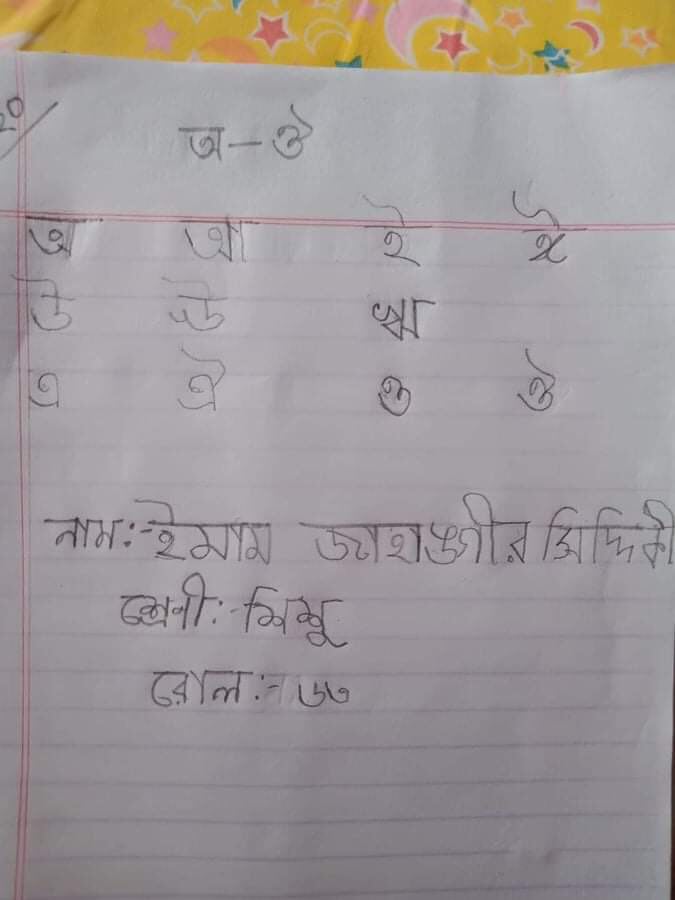 অ-ঔ
অ আ ই ঈ
উ ঊ ঋ
এ ঐ ও ঔ
নামঃ- ইমাম জাহাঙ্গীর সিদ্দিকী
শ্রেনীঃ- শিশু
রোলঃ- ৬৩